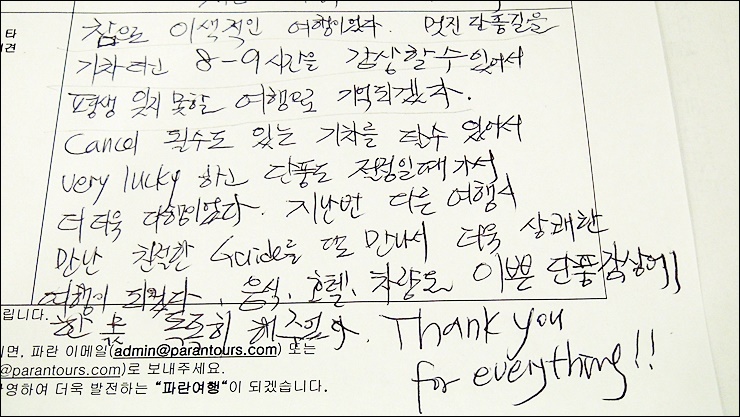 참으로 이색적인 여행이었다. 멋진 단풍길을
타
견
기차타고 8-9시간을 감상할 수 있어서
평생 잊지 못할 여행으로 기억되겠다.
Cancel 될수도 있는 기차를 탈수 있어서
very lucky 하고 단풍도 절정일때 가서
더 더욱 다행이었다. 지난번 다른 여행시
만난 친절한 Guide를 또 만나서 더욱 상쾌한
여행이 되었다. 음식, 호텔, 차량도 이쁜 단풍감상에
한 몫 톡톡히 해주었다. Thank you
for everything!!
립니다.
면, 파란 이메일(admin@parantours.com) 또는
@parantours.com)로 보내주세요.
영하여 더욱 발전하는 "파란여행"이 되겠습니다.